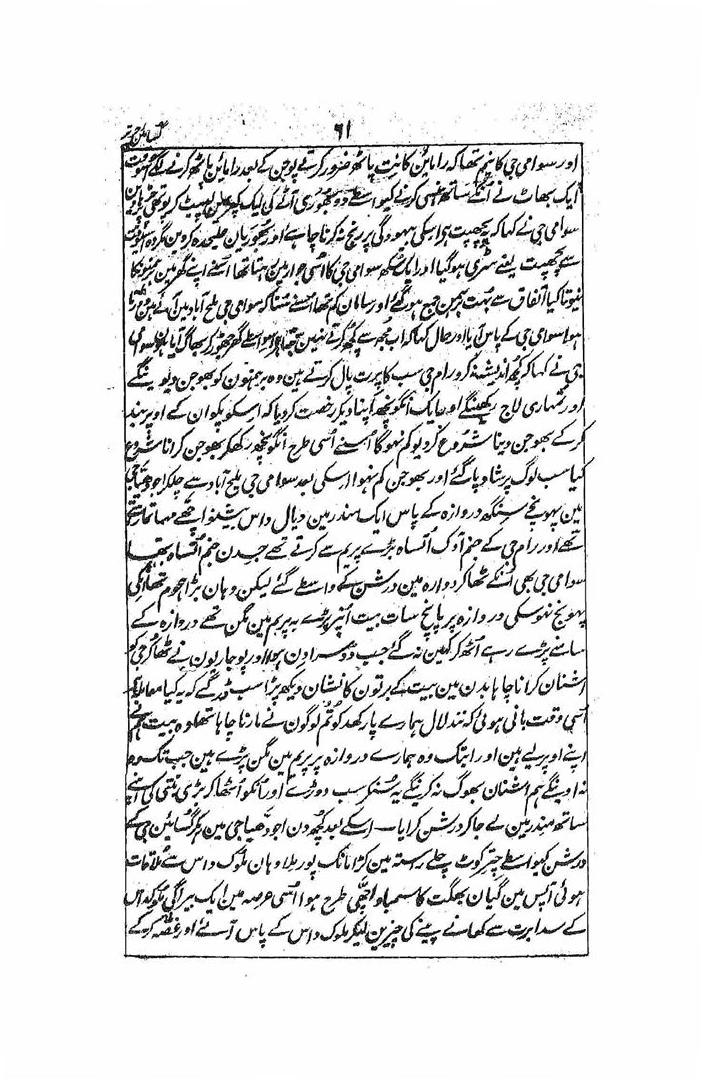 ۶۱
اور سوامی جی کا نیم تھا کہ راماین کا نِت پاٹھ ضرور کرتے پوجن کے بعد راماین پاٹھ کرنے لگے
ایک بھاٹ نے اُنکے ساتھ ہنسی کرنے کیواسطے دو کھجوری آٹے کی لیک لپیٹ کر
سوامی جی نے کہا کہ پرچھپت ہوا سکی بیہودگی پر رنج نہ کرنا چاہئے اور کھجوریان علیحدہ کر دین مگر وہ
سے پرچھپت یعنے سٹری ہو گیا اور ایک شخص سوامی جی کا اُسی جوار مین رہتا تھا اُسنے اپنے گھر مین
نیوتا کیا اتفاق سے بہت برہمن جمع ہو گئے اور سامان کم تھا اُسنے سُنا کہ سوامی جی ملیح آباد مین آئے ہین
ہوا سوامی جی کے پاس آیا اور حال کہا کہ اب مجھ سے کچھ کرتے نہین بنتا اسواسطے گھر چھوڑ کر بھاگ آیا ہون سوامی
جی نے کہا کہ کچھ اندیشہ نہ کرو رام جی سب کا پرت پال کرتے ہین وہ برہمنون کو بھوجن دیوینگے
اور تمہاری لاج رکھینگے اور ایک انگوچھہ اپنا دیکر رخصت کر دیا کہ اسکو پکوان کے اوپر بند
کر کے بھوجن دینا شروع کر دیو کم نہوگا اُسنے اُسی طرح انگوچھہ رکھکر بھوجن کرانا شروع
کیا سب لوگ پرشاد پا گئے اور بھوجن کم نہوا اسکی بعد سوامی جی ملیح آباد سے چلکر اجودھیا جی
مین پہونچے سنگھ دروازہ کے پاس ایک مندر مین دیال داس بیشنو اچھے مہاتما رہتے
تھے اور رام جی کے جنم آدک اُتساہ بڑے پریم سے کرتے تھے جسدن جنم اُتساہ تھا
سوامی جی بھی اُنکے ٹھاکردوارہ مین درشن کے واسطے گئے لیکن وہان بڑا ہجوم تھا انکی
پہونچ نہوسکی دروازہ پر پانچ سات بیت اُنپر پڑے یہ پریم مین مگن تھے دروازہ کے
سامنے پڑے رہے اُٹھ کر کہین نہ گئے جب دوسرا دن ہوا اور پوجاریون نے ٹھاکر جی کو
اشنان کرانا چاہا بدن مین بیت کے برتون کا نشان دیکھ پڑا سب ڈر گئے کہ یہ کیا معاملہ ہے
اُسی وقت بانی ہوئی کہ نندلال ہمارے پارکھد کو تم لوگون نے مارنا چاہا تھا وہ بیت ہمنے
اپنے اوپر لیے ہین اور ابتک وہ ہمارے دروازہ پر پریم مین مگن پڑے ہین جب تک وہ
نہ آوینگے ہم اشنان بھوگ نہ کرینگے یہ سُنکر سب دوڑے اور اُنکو اُٹھا کر بڑی بنتی کی اپنے
ساتھ مندر مین لے جا کر درشن کرایا — اسکے بعد کچھ دن اجودھیا جی مین رہکر گسائین جی کے
درشن کیواسطے چتر کوٹ چلے رستہ مین کڑا مانک پور ملا وہان ملوک داس سے ملاقات
ہوئی آپس مین گیان بھگت کا سمباد اچھی طرح ہوا اُسی عرصہ مین ایک بیراگی ملوکداس
کے سدابرت سے کھانے پینے کی چیزین لیکر ملوک داس کے پاس آئے اور غصہ کر کے